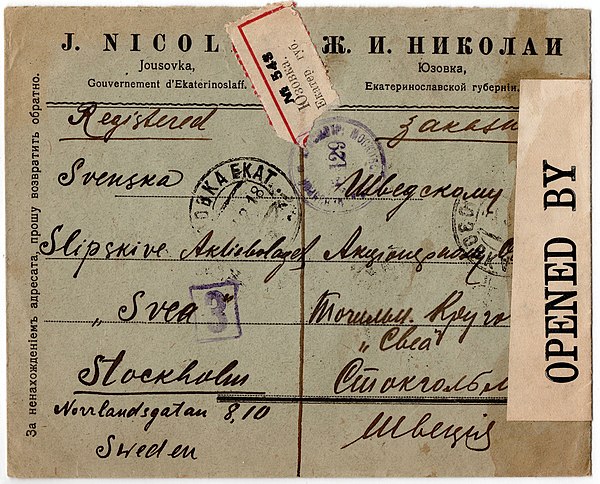 J. NICOL
Jousovka,
Gouvernement d'Ekaterinoslaff.
Ж. И. НИКОЛАИ
Юзовка,
Екатеринославской губерніи.
№ 548
Юзовка.
Екатер губ.
Registered
Svenska
Slipskive Aktiebolaget
„Svea"
Stockholm
Norrlandsgatan 8, 10
Sweden
Шведскому
Точильн. Круго
„Свеа"
Стокгольм
Швеція
ОВКА ЕКАТ.
129
3
OPENED BY
За ненахожденіемъ адресата, прошу возвратить обратно.